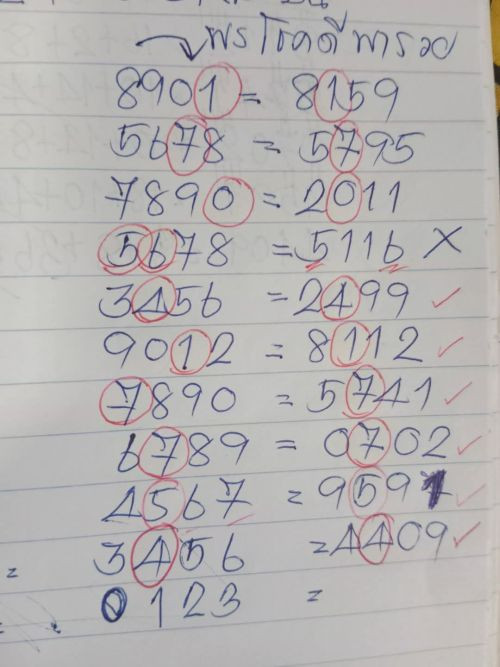 พรโชคดี พารวย
8901 = 8159
5678 = 5795
7890 = 2011
5678 = 5116 X
3456 = 2499 ✓
9012 = 8112 ✓
7890 = 5741 ✓
6789 = 0702 ✓
4567 = 9591 ✓
3456 = 4409 ✓
= 0123 =